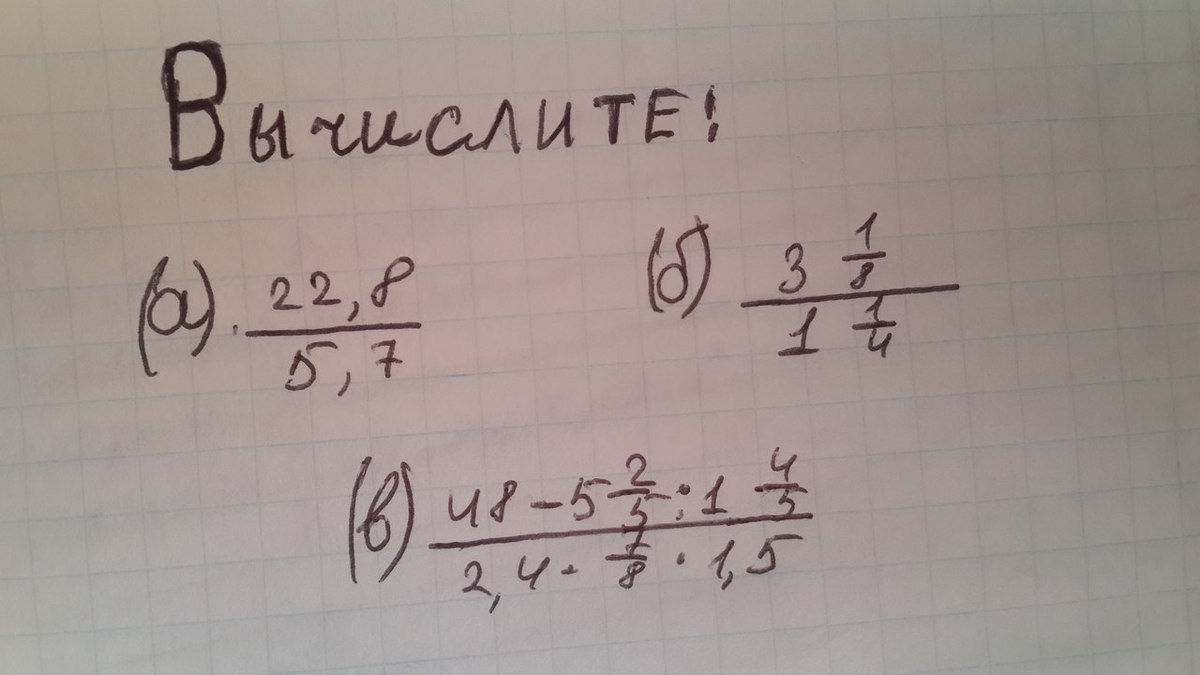 Вычислите!
(а). 22,8 / 5,7 (б) 3 1/8 / 1 1/4
(в) 48 - 5 2/5 : 1 4/5 / 2,4 · 7/8 · 1,5